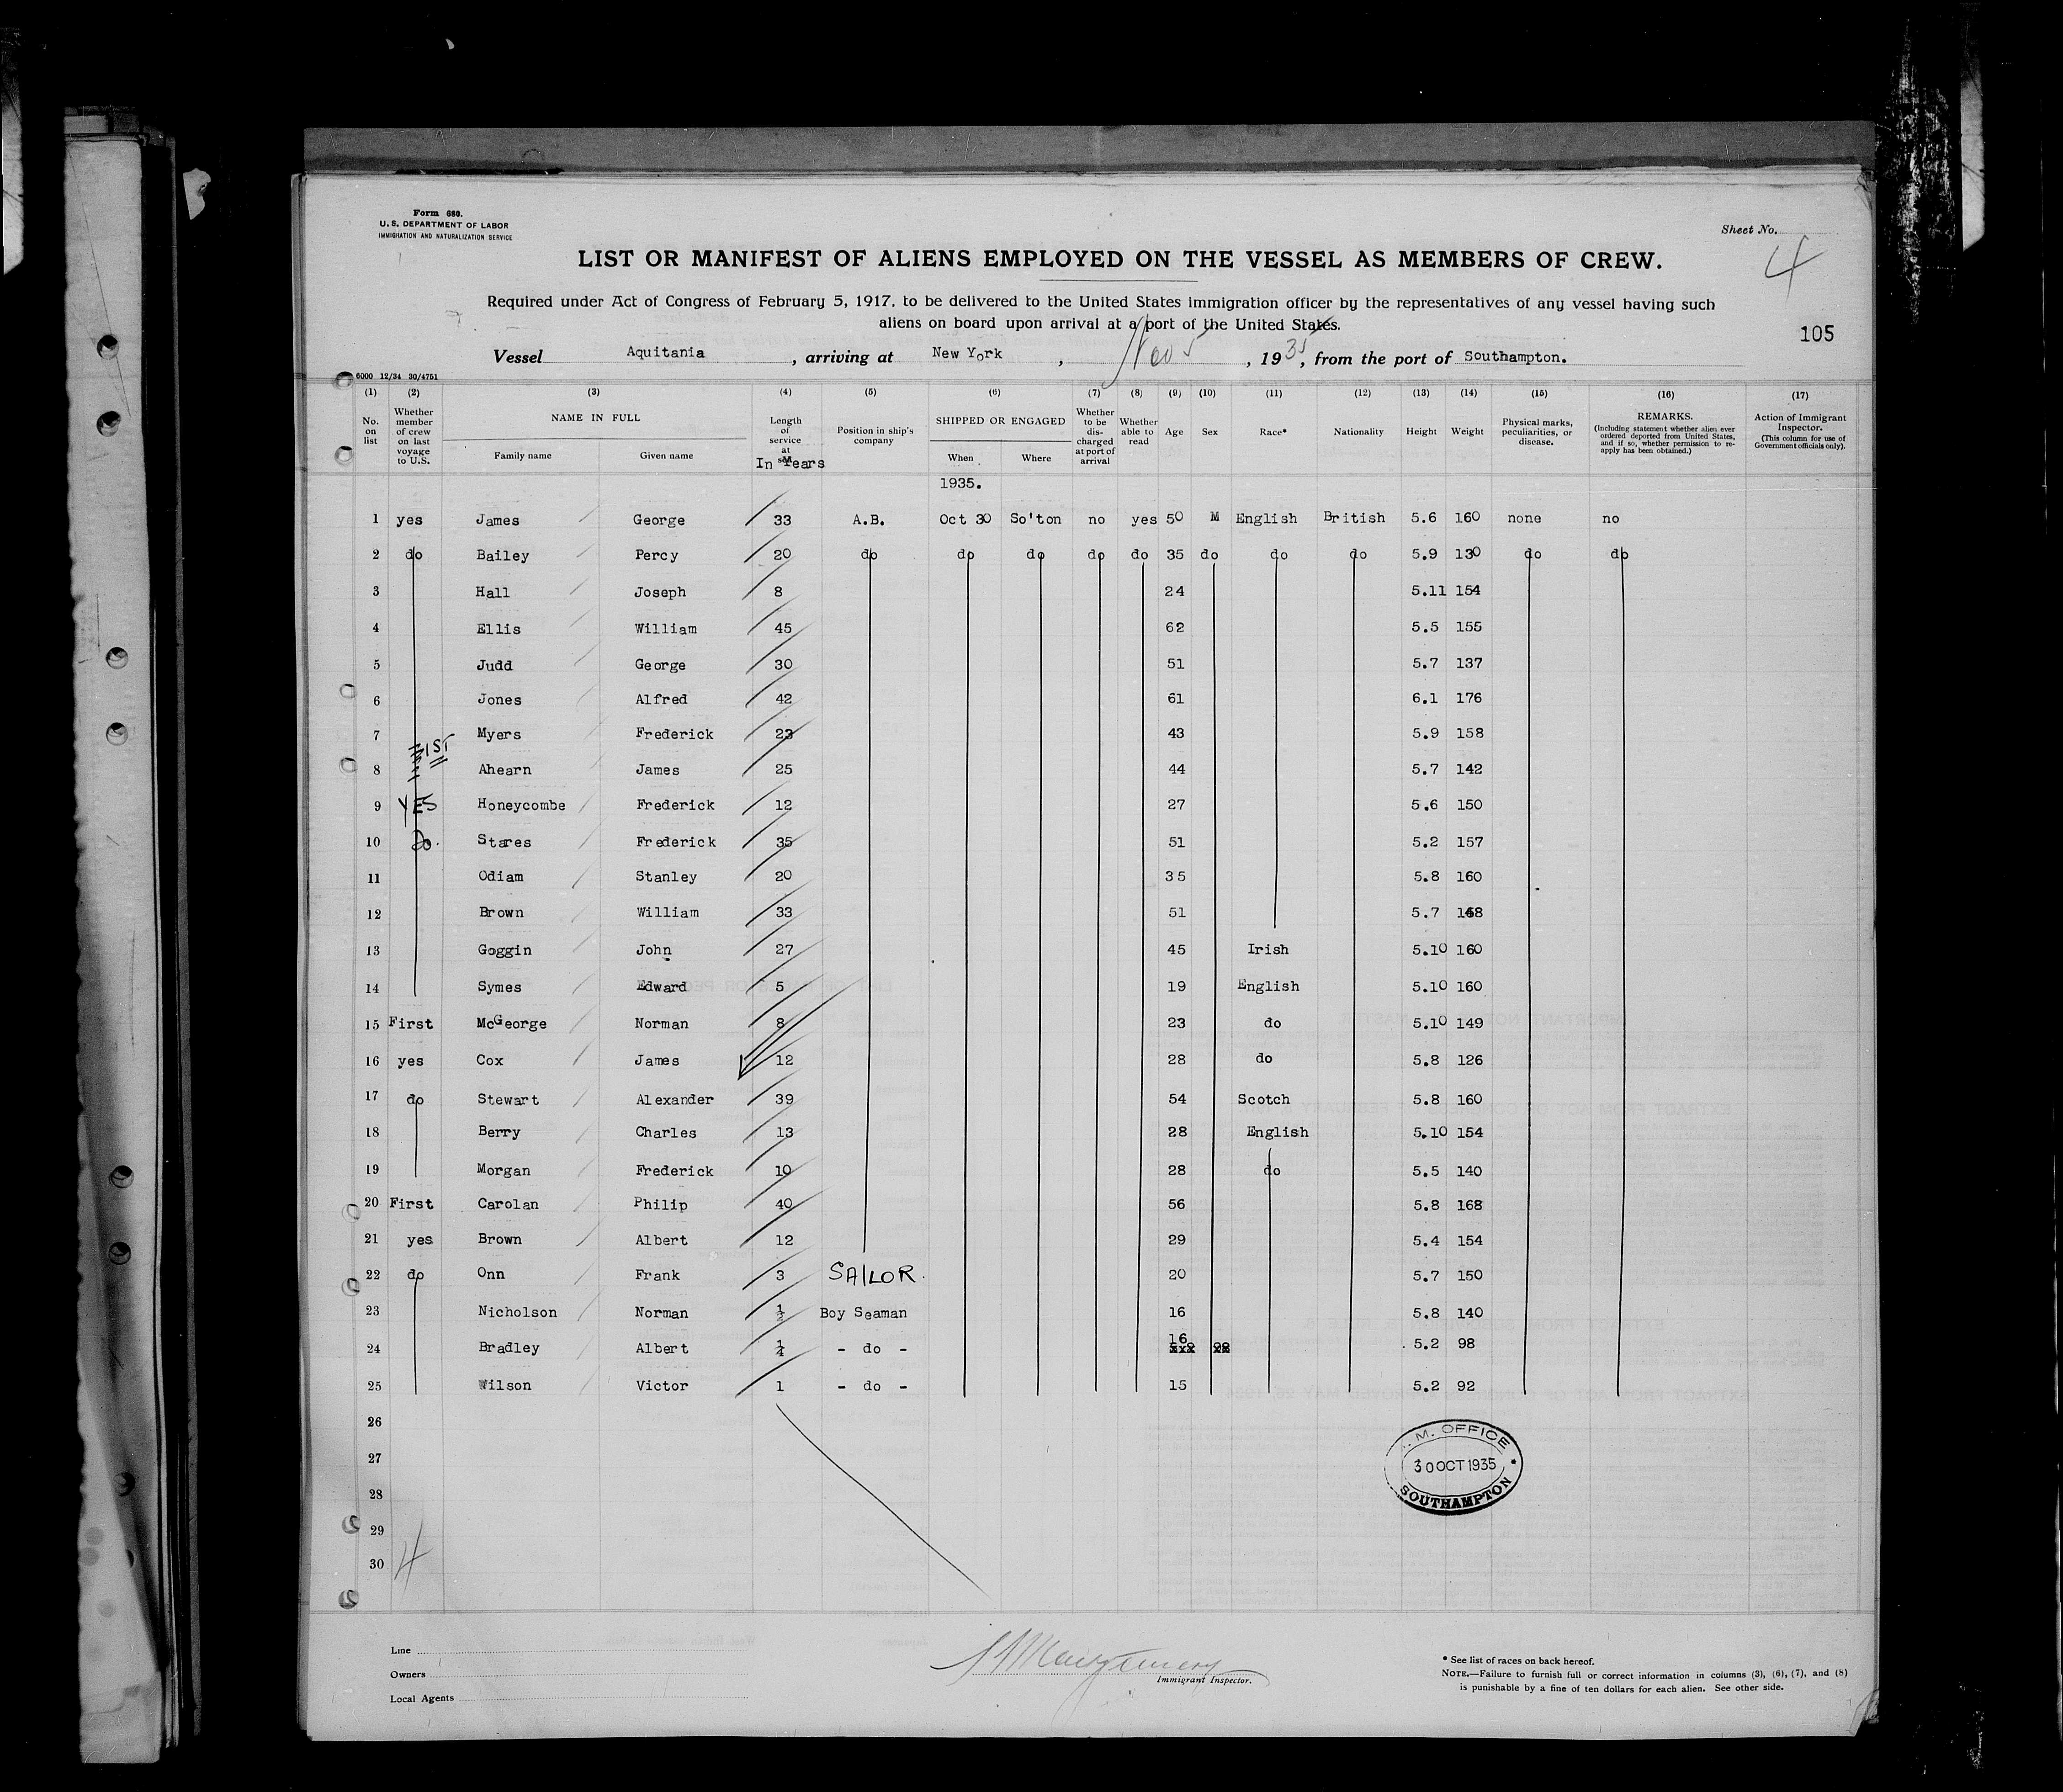 Form 680.
U. S. DEPARTMENT OF LABOR
IMMIGRATION AND NATURALIZATION SERVICE
Sheet No.
4
LIST OR MANIFEST OF ALIENS EMPLOYED ON THE VESSEL AS MEMBERS OF CREW.
Required under Act of Congress of February 5, 1917, to be delivered to the United States immigration officer by the representatives of any vessel having such
aliens on board upon arrival at a port of the United States.
105
Vessel Aquitania , arriving at New York , Nov 5 , 1935, from the port of Southampton.
6000 12/34 30/4751
(1) (2) (3) (4) (5) (6) (7) (8) (9) (10) (11) (12) (13) (14) (15) (16) (17)
No. on list
Whether member of crew on last voyage to U.S.
NAME IN FULL
Family name
Given name
Length of service at sea
In Years
Position in ship's company
SHIPPED OR ENGAGED
When
Where
Whether to be discharged at port of arrival
Whether able to read
Age
Sex
Race*
Nationality
Height
Weight
Physical marks, peculiarities, or disease.
REMARKS.
(Including statement whether alien ever ordered deported from United States, and if so, whether permission to reapply has been obtained.)
Action of Immigrant Inspector.
(This column for use of Government officials only).
1935.
1 yes James George 33 A.B. Oct 30 So'ton no yes 50 M English British 5.6 160 none no
2 do Bailey Percy 20 do do do do do 35 do do do 5.9 130 do do
3 Hall Joseph 8 24 5.11 154
4 Ellis William 45 62 5.5 155
5 Judd George 30 51 5.7 137
6 Jones Alfred 42 61 6.1 176
7 Myers Frederick 23 43 5.9 158
1ST
8 Ahearn James 25 44 5.7 142
9 YES Honeycombe Frederick 12 27 5.6 150
10 do. Stares Frederick 35 51 5.2 157
11 Odiam Stanley 20 35 5.8 160
12 Brown William 33 51 5.7 168
13 Goggin John 27 45 Irish 5.10 160
14 Symes Edward 5 19 English 5.10 160
15 First McGeorge Norman 8 23 do 5.10 149
16 yes Cox James 12 28 do 5.8 126
17 do Stewart Alexander 39 54 Scotch 5.8 160
18 Berry Charles 13 28 English 5.10 154
19 Morgan Frederick 10 28 do 5.5 140
20 First Carolan Philip 40 56 5.8 168
21 yes Brown Albert 12 29 5.4 154
22 do Onn Frank 3 SAILOR. 20 5.7 150
23 Nicholson Norman ½ Boy Seaman 16 5.8 140
24 Bradley Albert ¼ - do - 16 5.2 98
25 Wilson Victor 1 - do - 15 5.2 92
26
27
28
29
30
4
M. OFFICE
30 OCT 1935
SOUTHAMPTON
Line
Owners
Local Agents
Montgomery
Immigrant Inspector.
* See list of races on back hereof.
NOTE.—Failure to furnish full or correct information in columns (3), (6), (7), and (8)
is punishable by a fine of ten dollars for each alien. See other side.